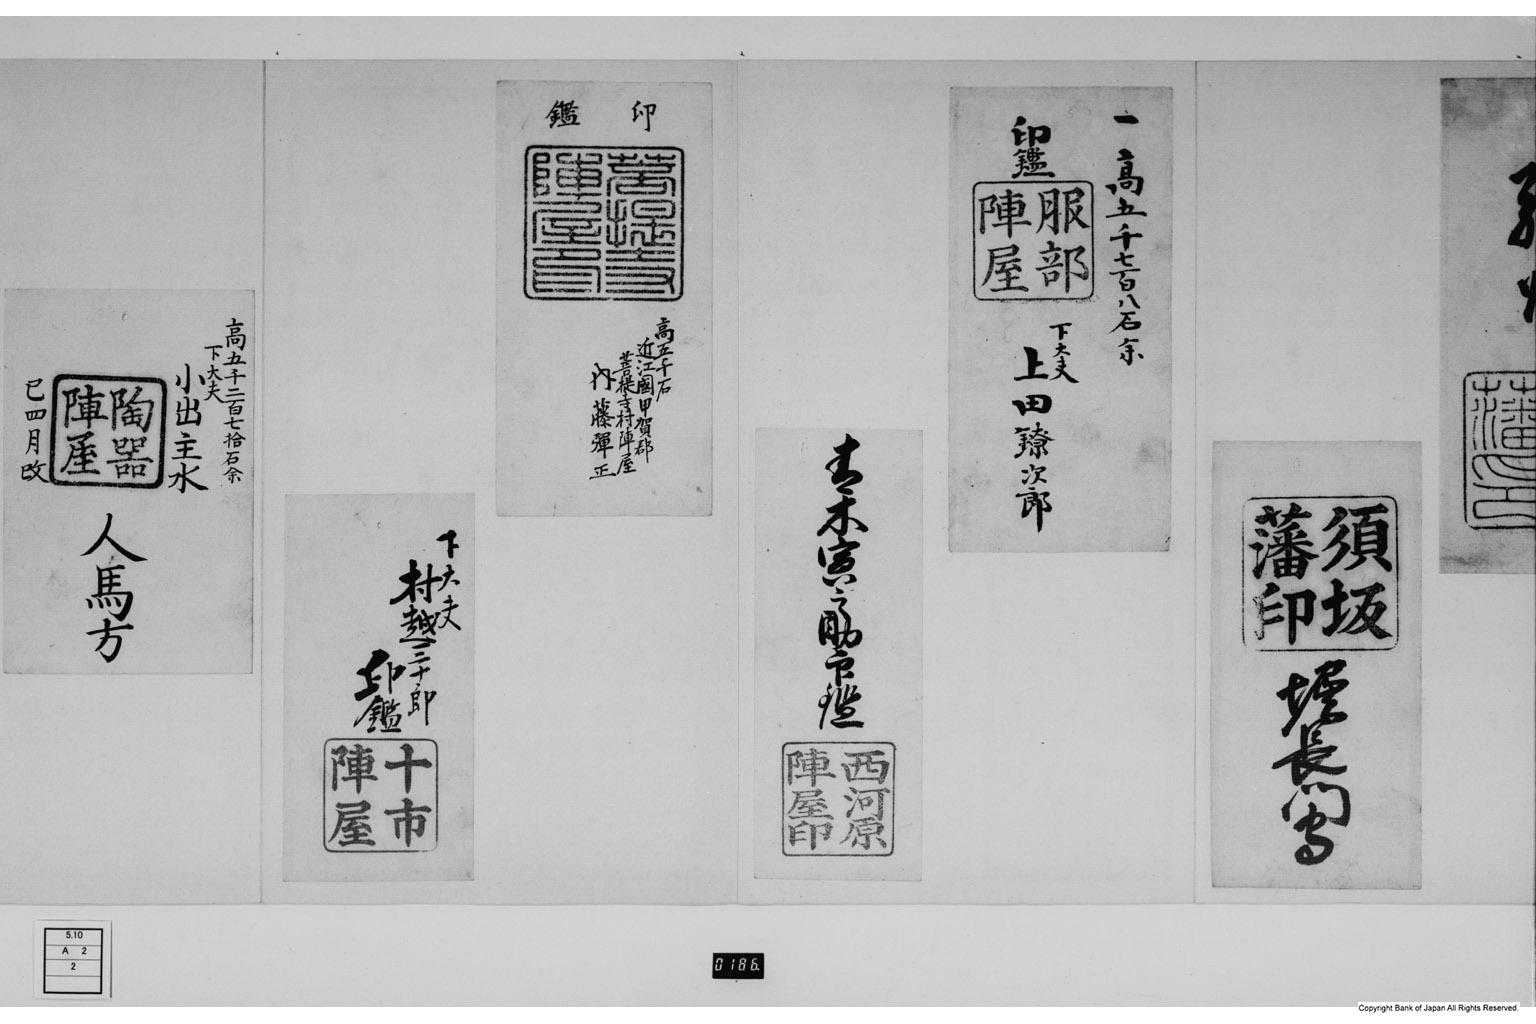 須坂
藩印
堀長門守
一高五千七百八石余
印鑑
服部
陣屋
下大夫
上田鐐次郎
青木寅之助印鑑
西河原
陣屋印
印鑑
菩提寺
陣屋印
高五千石
近江國甲賀郡
菩提寺村陣屋
内藤彈正
下大夫
村越三十郎
印鑑
十市
陣屋
高五千二百七拾石余
下大夫
小出主水
陶器
陣屋
巳四月改
人馬方
5.10
A 2
2
0186
Copyright Bank of Japan All Rights Reserved.